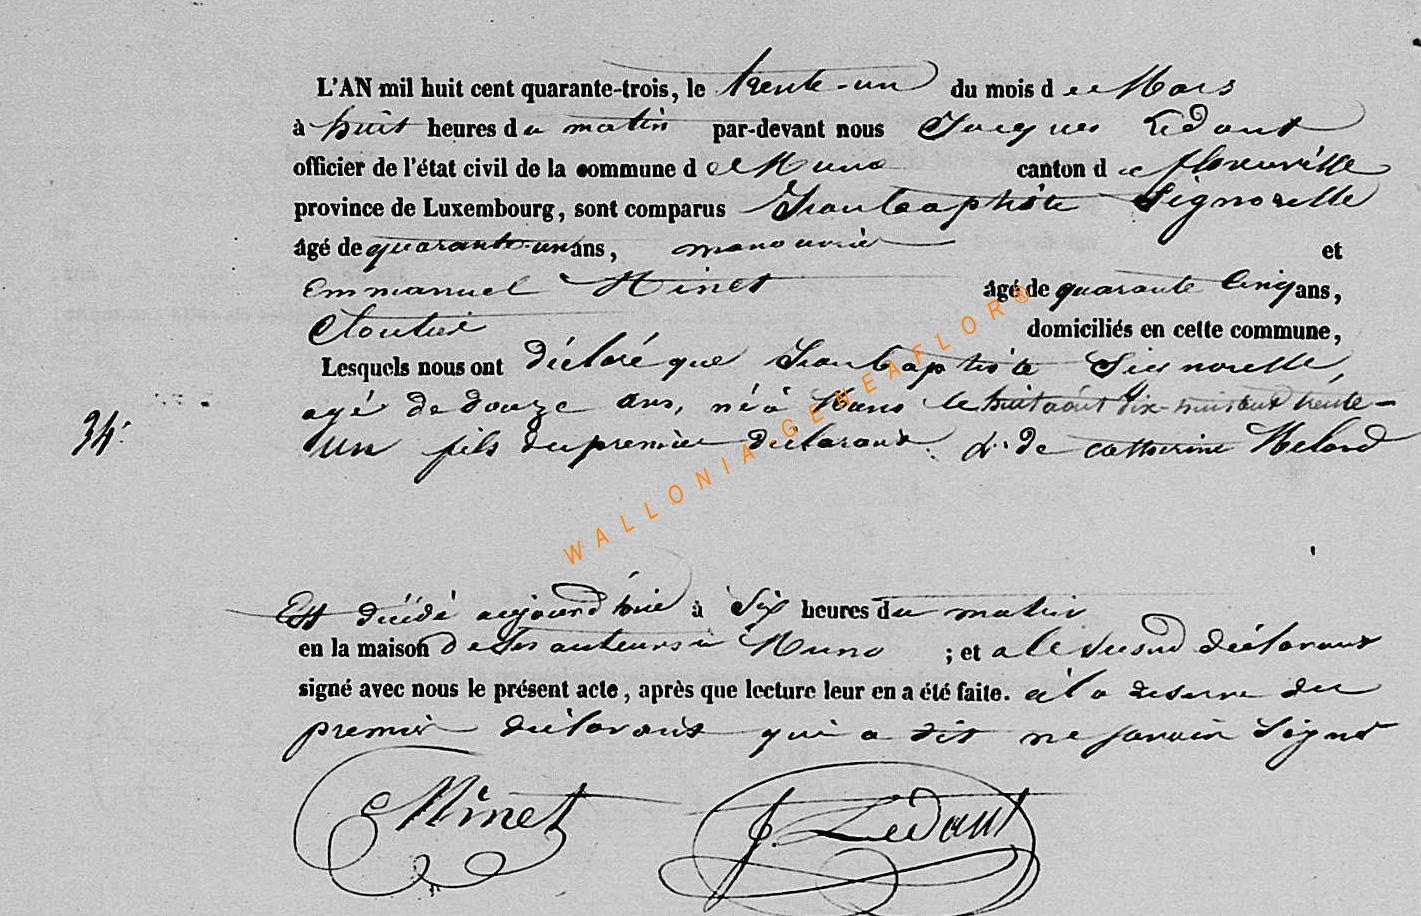 L'AN mil huit cent quarante-trois, le trente-un du mois de Mars
à huit heures du matin par-devant nous Jacques Ledant
officier de l'état civil de la commune de Muno canton de florenville
province de Luxembourg, sont comparus Jean baptiste Signorelle
âgé de quarante-un ans, manouvrier et
Emmanuel Minet âgé de quarante Cinq ans,
Cloutier domiciliés en cette commune,
Lesquels nous ont déclaré que Jean baptiste Signorelle,
agé de douze ans, né à Muno le huit août dix-huit cent trente-
34. un fils du premier déclarant & de catherine
Est décédé aujourd'hui à Six heures du matin
en la maison de Ses auteurs à Muno ; et a le susdit déclarant
signé avec nous le présent acte, après que lecture leur en a été faite. à la reserve du
premier déclarant qui a dit ne savoir Signer
E Minet J. Ledant
WALLONIA-GENEAFLOR®